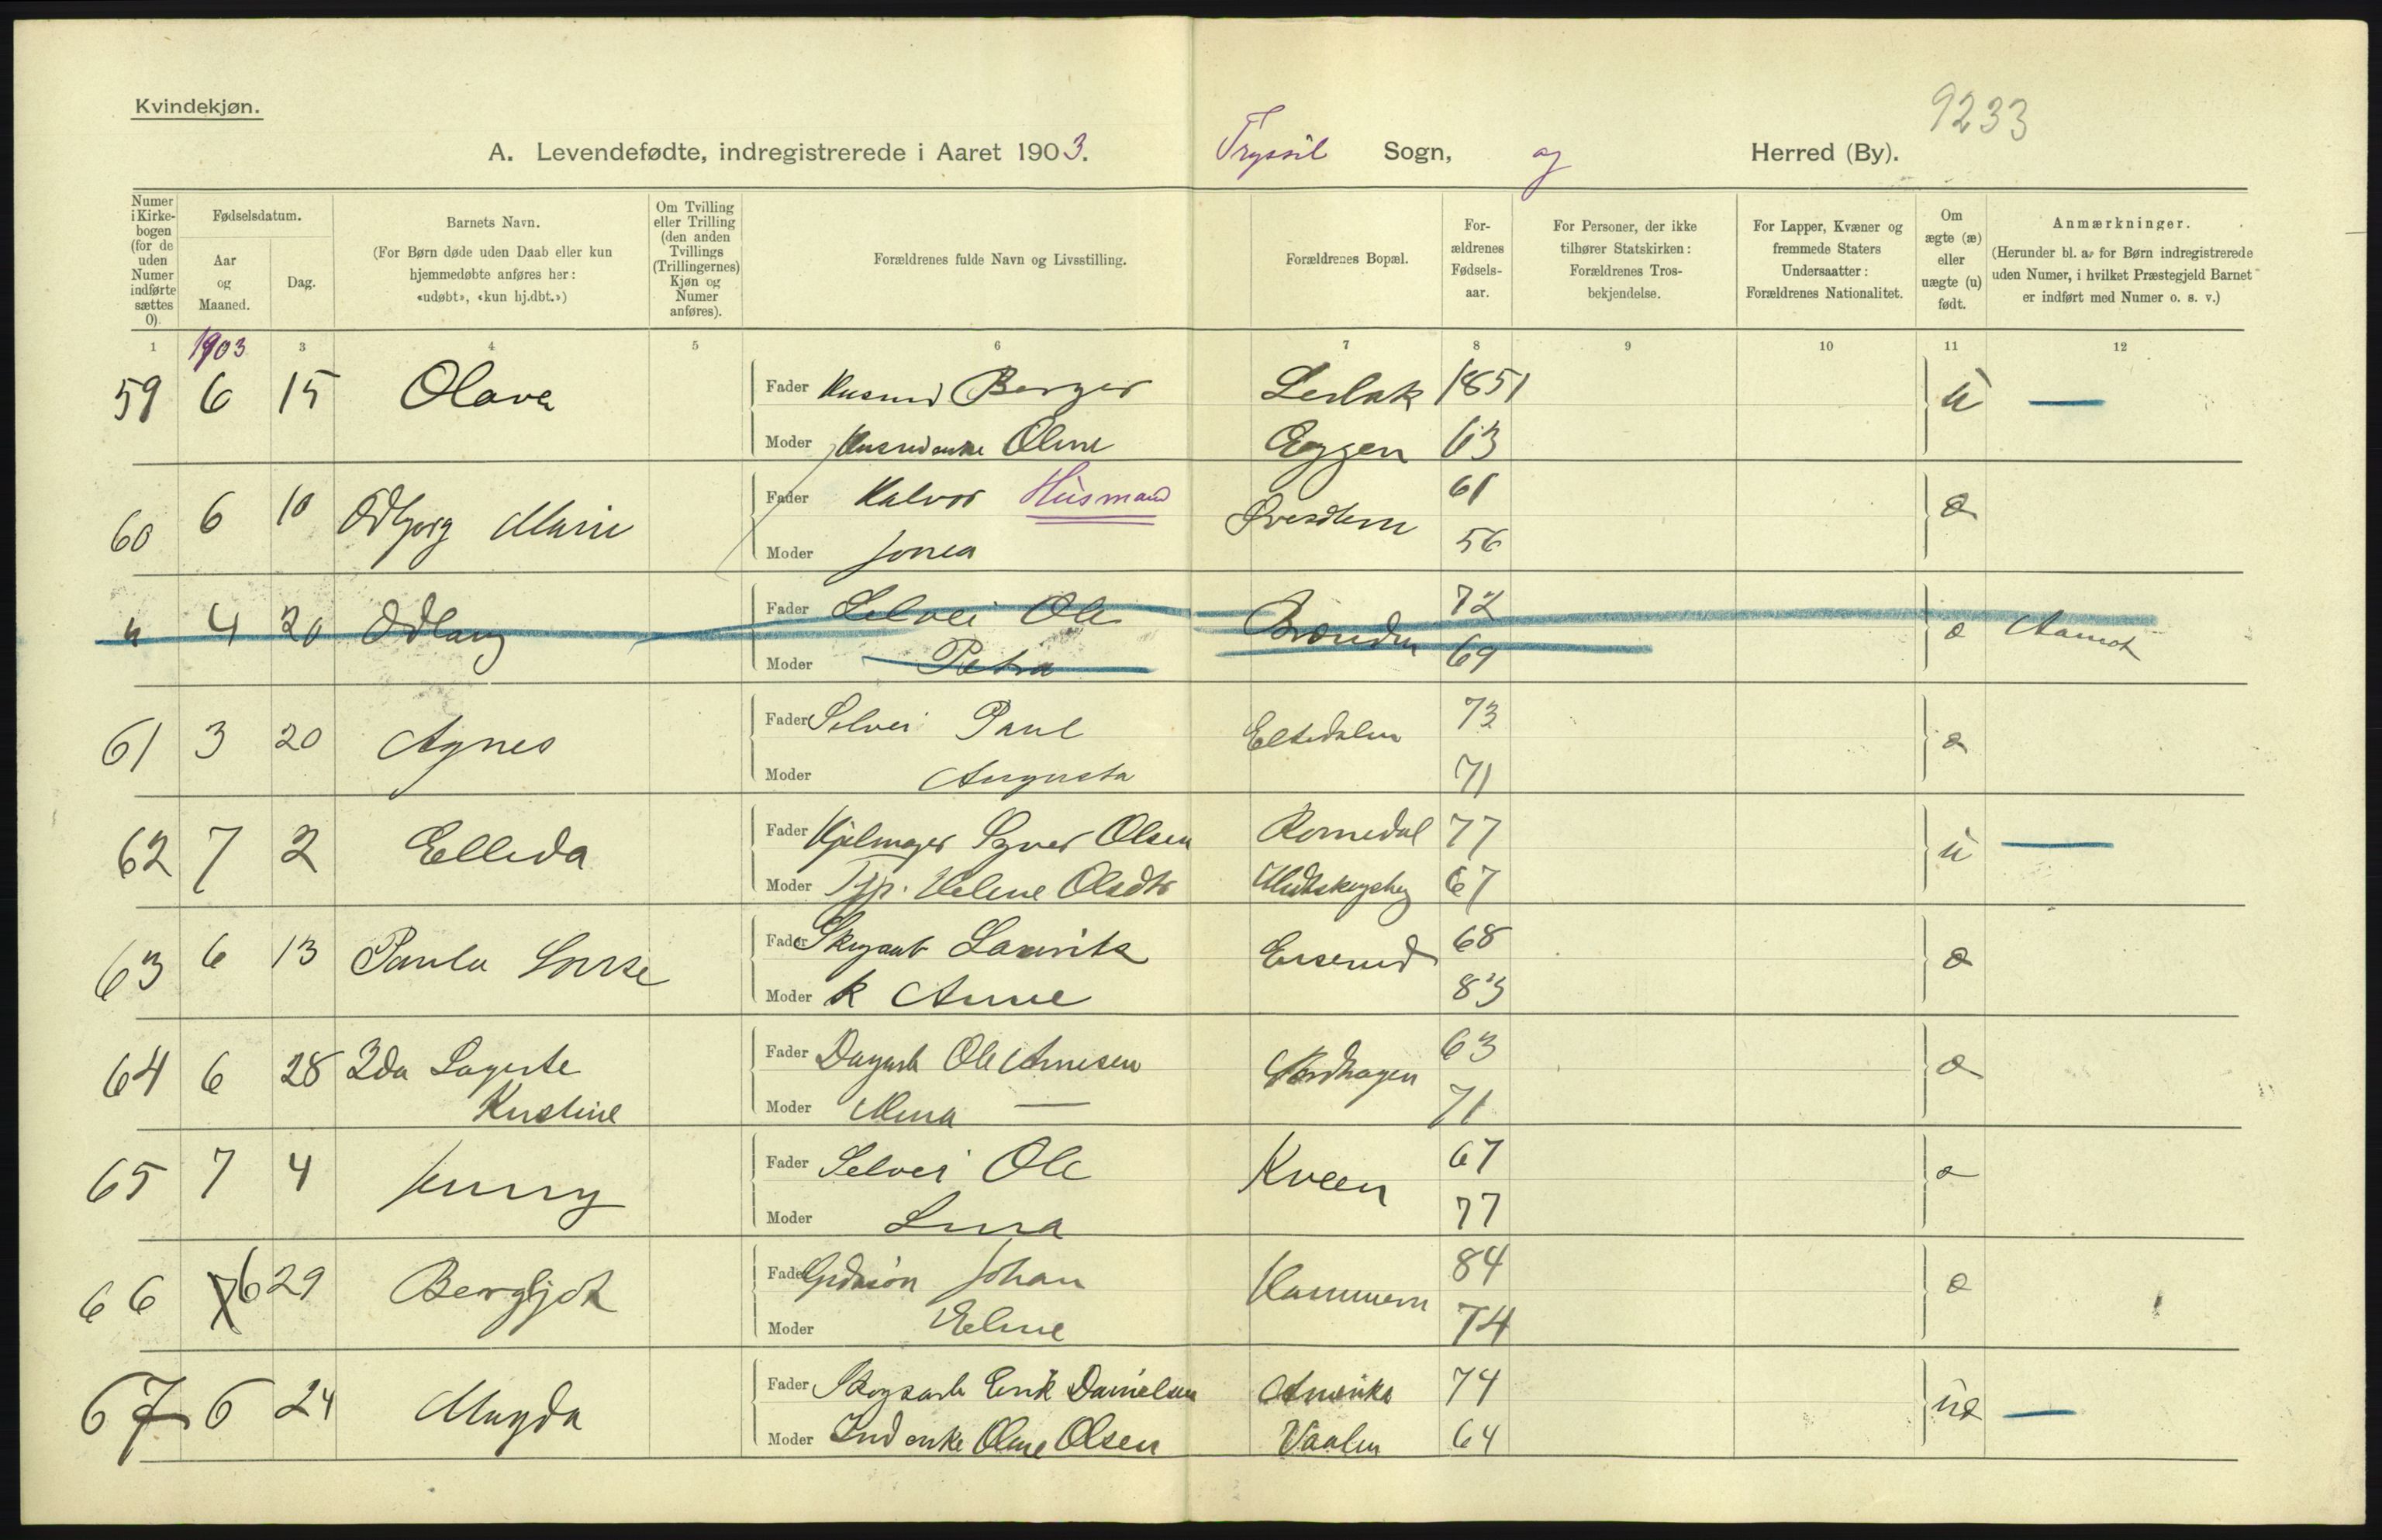 Kvindekjøn.
9233
A. Levendefødte, indregistrerede i Aaret 1903. Trysil Sogn, og Herred (By).
Numer i Kirkebogen (for de uden Numer indførte sættes 0).
Fødselsdatum.
Aar og Maaned.
Dag.
Barnets Navn.
(For Børn døde uden Daab eller kun hjemmedøbte anføres her: «udøbt», «kun hj.dbt.»)
Om Tvilling eller Trilling (den anden Tvillings (Trillingernes) Kjøn og Numer anføres).
Forældrenes fulde Navn og Livsstilling.
Forældrenes Bopæl.
Forældrenes Fødselsaar.
For Personer, der ikke tilhører Statskirken: Forældrenes Trosbekjendelse.
For Lapper, Kvæner og fremmede Staters Undersaatter: Forældrenes Nationalitet.
Om ægte (æ) eller uægte (u) født.
Anmærkninger.
(Herunder bl. a. for Børn indregistrerede uden Numer, i hvilket Præstegjeld Barnet er indført med Numer o. s. v.)
1 1903 3 4 5 6 7 8 9 10 11 12
59 6 15 Olava Fader Berger 1851 u —
Moder Oline Eggen 63
60 6 10 Odbjørg Marie Fader Halvor Husmand 61 æ
Moder Jonea 56
" 4 20 Odlaug Fader Selvei Ole 72 æ Aamot
Moder Petra 69
61 3 20 Agnes Fader Selvei Paul Eltdalen 73 æ
Moder Augusta 71
62 7 2 Ellida Fader Syver Olsen Romedal 77 u —
Moder Tjp. Helene Olsdtr 67
63 6 13 Paula Lovise Fader Skogarb Laurits 68 æ
Moder k Anne 83
64 6 28 Ida Fader Dagarb Ole Arnesen Nordhagen 63 æ
Kristine Moder — 71
65 7 4 Jenny Fader Selvei Ole Kveen 67 æ
Moder Lina 77
66 6 29 Bergljot Fader Johan Hammern 84 æ
Moder Eline 74
67 6 24 Magda Fader Skogsarb Erik Danielsen Amerika 74 uæ —
Moder Ind enke Oline Olsen Vaalen 64